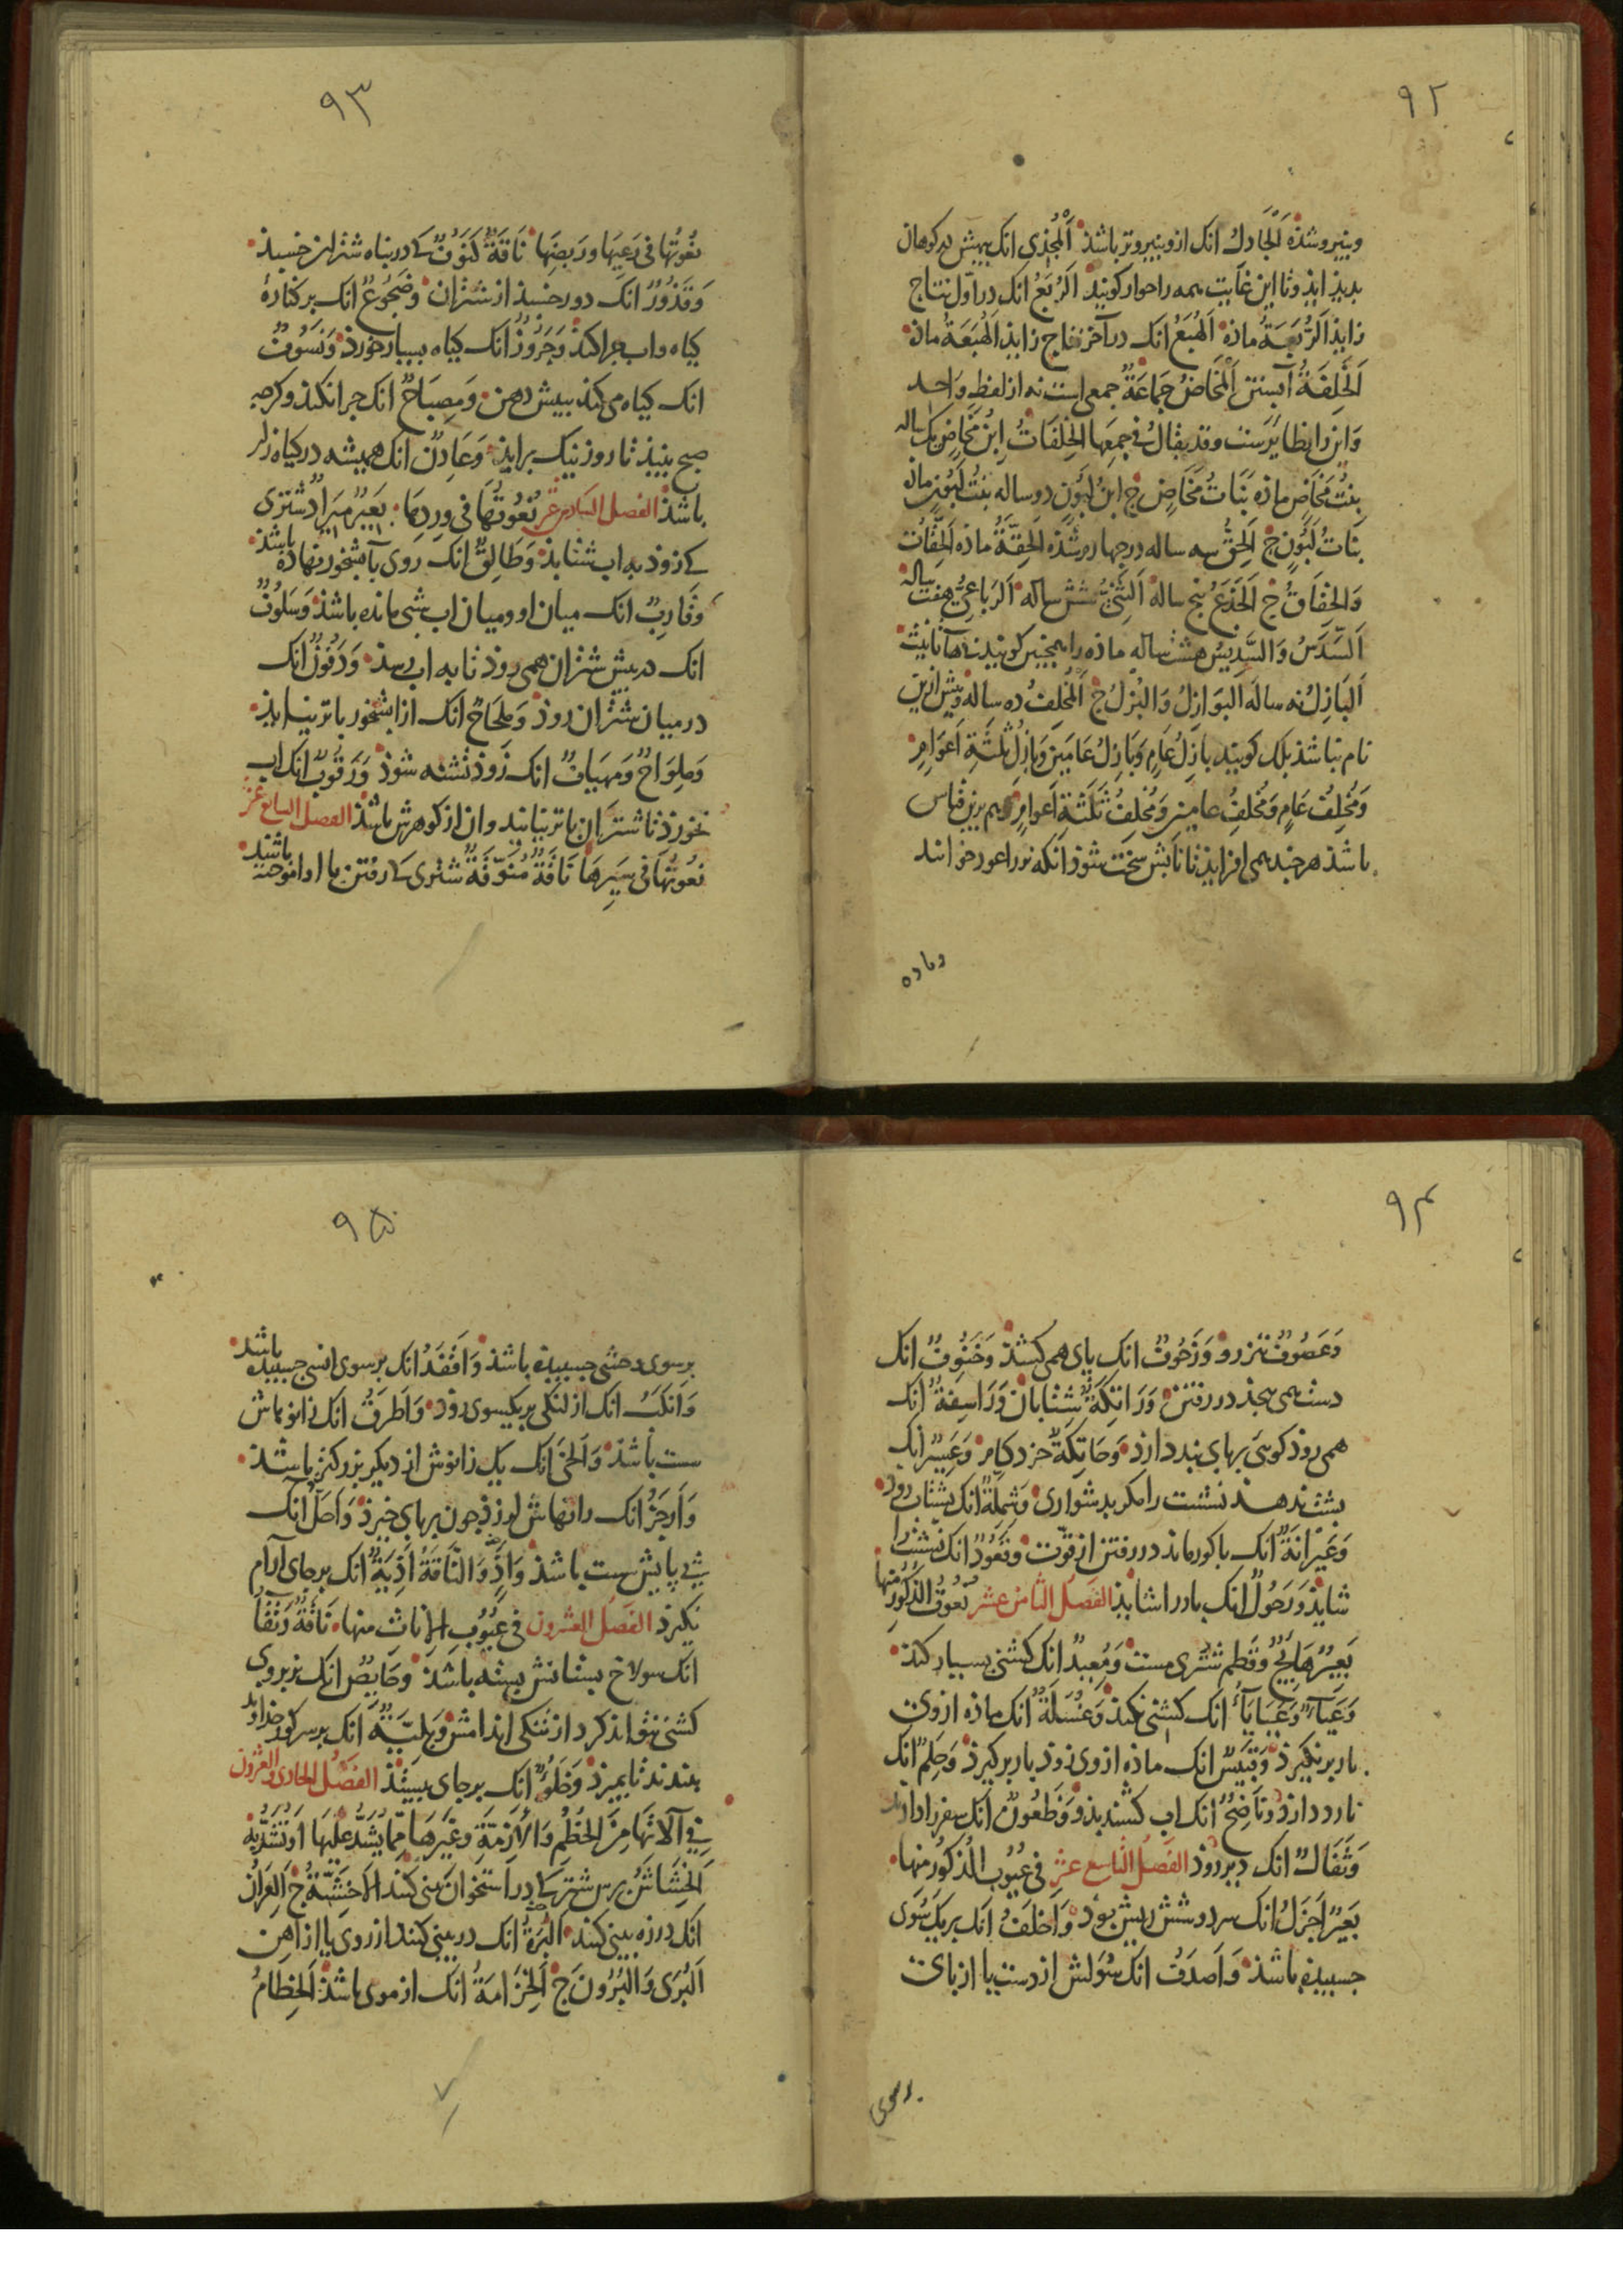 ٩٢
وبنیرو شذه اَلْجَادِلُ انک ازو بنیروتر باشذ اَلْمُجْذِی انک بهش در کوهان
بدید ایذ وتا این غایت همه را حوار کویند اَلرُّبَعُ انک در اوّل نتاج
زایذ اَلرُّبَعَةُ ماذه اَلْهُبَعُ انک در آخر نتاج زایذ اَلْهُبَعَةُ ماذه
اَلْخَلِفَةُ آبستن اَلْمَخَاضُ جَمَاعَةٌ جمعی است نه از لفظِ واحد
وَاین را نظایرست وقد یقالُ فی جمعِها الخَلِفَاتُ اِبْنُ مَخَاضٍ یک ساله
بِنْتُ مَخَاضٍ ماذه بَنَاتُ مَخَاضٍ ج اِبْنُ لَبُونٍ دو ساله بِنْتُ لَبُونٍ ماذه
بَنَاتُ لَبُونٍ ج اَلْحِقُّ سه ساله در چهارم شذه اَلْحِقَّةُ ماذه اَلْحِقَاتُ
وَالْحِقَاقُ ج اَلْجَذَعُ پنج ساله اَلثَّنِیُّ شش ساله اَلرَّبَاعِیُّ هفت ساله
اَلسَّدَسُ وَالسَّدِیسُ هشت ساله ماذه را همچنین کویند بی هآ تانیث
اَلْبَازِلُ نه ساله اَلْبَوَازِلُ وَالْبُزْلُ ج اَلْمُخْلِفُ ده ساله وبیش ازین
نام نباشذ بلک کویند بَازِلُ عَامٍ وَبَازِلُ عَامَیْنِ وَبَازِلُ ثَلٰثَةِ اَعْوَامٍ
وَمُخْلِفُ عَامٍ وَمُخْلِفُ عامین وَمُخْلِفُ ثَلٰثَةِ اَعْوَامٍ هم برین قیاس
باشذ هر چند همی افزایذ تا نابش سخت شوذ انکه نر را عود خوانند
وماده
٩٣
نُعُوتُهَا فِی رَعْیِهَا ورَبْضِهَا نَاقَةٌ کَنُوفٌ کی در پناه شتران خسبذ
وَقَذُورٌ انک دور خسبذ از شتران وَضَجُوعٌ انک بر کنارهٔ
کیاه واب چرا کند وَجَرُوزٌ انک کیاه بسیار خورد وَنَسُوفٌ
انک کیاه می کند بپیش دهن وَمِصْبَاحٌ انک چرا نکند وکرچه
صبح بیند تا روز نیک براید وَعَادِنٌ انک همیشه در کیاه زار
باشذ الفصل السادس عشر نُعُوتُهَا فی وِرْدِهَا بَعِیرٌ مِیرَادٌ شتری
کی زوذ به اب شتابذ وَطَالِقٌ انک روی بآبشخور نهاده باشذ
وَقَارِبٌ انک میان او ومیان اب شبی مانده باشذ وَسَلُوفٌ
انک در پیش شتران همی روذ تا به اب رسذ وَدَفُونٌ انک
در میان شتران روذ وَمِلْحَاحٌ انک از ابشخور باتر نیایذ
وَمِلْوَاحٌ وَمِهْیَافٌ انک زوذ تشنه شوذ وَرَقُوبٌ انک اب
نخورذ تا شتران باتر نیایند وان از کوهرش باشذ الفصل السابع عشر
نُعُوتُهَا فی سَیْرِهَا نَاقَةٌ مُنَوَّقَةٌ شتری کی رفتن با او اموخته باشند
٩٤
وَعَصُوفٌ تیزرو وَزَحُوفٌ انک پای همی کشذ وَخَنُوفٌ انک
دست همی پیچذ در رفتن وَرَاتِکَةٌ شتابان وَرَاسِفَةٌ انک
همی روذ کوئی بپای بند دارذ وَحَاتِکَةٌ خرد کام وَعَسِیرٌ انک
پشت ندهذ نشست را مکر بدشواری وَشِمِلَّةٌ انک بشتاب روذ
وَعَیْرَانَةٌ انک باکور ماند در رفتن از قوّت وَقَعُودٌ انک نشست را
شایذ وَرَحُولٌ انک بار را شایذ الفَصْلُ الثامن عشر نُعُوتُ الذُّکُورِ مِنْهَا
بَعِیرٌ هَایِجٌ وَقَطِمٌ شتری مست وَمُعِیدٌ انک کشنی بسیار کند
وَعَیَاءٌ وَعَیَایَاءُ انک کشنی نکند وَغُسَلَةٌ انک ماذه از وی
بار برنکیرذ وَقَبِیسٌ انک ماذه از وی زوذ بار برکیرذ وَحَلِمٌ انک
نارد دارذ وَنَاضِحٌ انک اب کشند بذو وَظَعُونٌ انک سفر را دارند
وَثَفَالٌ انک دیر روذ الفَصْلُ التاسع عشر فی عُیُوبِ الذُّکُورِ مِنْهَا
بَعِیرٌ اَجْزَلُ انک سر دوشش ریش بوَد وَاَحْلَفُ انک بر یک سُوی
چسبیذه باشذ وَاَصْدَفُ انک سُولش از دست یا از پای
برسوی
٩٥
برسوی وحشی چسبیذه باشذ وَاَقْفَدُ انک برسوی انسی چسبیذه باشد
وَاَنْکَبُ انک از لنکی بر یکسوی روذ وَاَطْرَقُ انک زانوهاش
سست باشذ وَاَلْخٰی انک یک زانوش از دیکر بزرکتر باشذ
وَاَرْجَزُ انک رانهاش لرزذ چون بپای خیزذ وَاَحَلُّ انک
پی پایش سست باشذ وَاَذٍ وَالنَّاقَةُ اَذِیَةٌ انک بر جای آرام
نکیرذ الفَصْلُ العشرون فی عُیُوبِ الاناث منها نَاقَةٌ رَتْقَاءُ
انک سولاخ پستانش بسته باشذ وَحَایِصٌ انک نر بر وی
کشنی نتواند کرد از تنکی اندامش وَبَلِیَّةٌ انک بر سر کور خداوند
بندند تا بمیرذ وَخَلُوءٌ انک بر جای بستذ الفَصْلُ الحادی والعشرون
فِی آلَاتِهَا مِنَ الخُطُمِ وَالْاَزِمَّةِ وَغَیْرِهَا مِمَّا یُشَدُّ عَلَیْهَا اَوْ تُشَدُّ بِهِ
اَلْخِشَاشُ برس شتر کی در استخوان بینی کنند اَلْاَخِشَّةُ ج اَلْعِرَانُ
انک در زه بینی کنند اَلْبُرَةُ انک در بینی کنند از روی یا از اهن
اَلْبُرَی وَالْبُرُونَ ج اَلْخِزَامَةُ انک از موی باشذ اَلْخِطَامُ